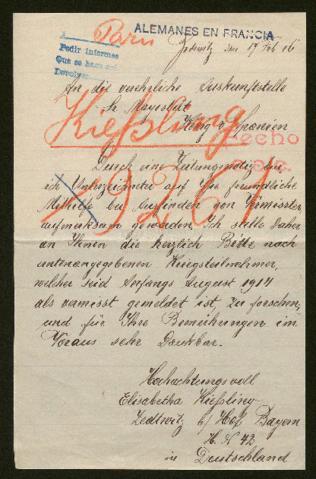 Paris
ALEMANES EN FRANCIA
Pedir informes
Que se haga así
Devolver
Zedtwitz den 17 Feb 16
An die verehrliche Auskunftstelle
Sr Mayestät
König v. Spanien
Kießling
echo
Durch eine Zeitungsnotiz bin
ich Unterzeichnete auf Ihre freundliche
Mithilfe bei Auffinden von Vermissten
aufmerksam geworden. Ich stelle daher
an Ihnen die herzlich Bitte nach
untenangegebenen Kriegsteilnehmer,
welcher seid Anfangs August 1914
als vermisst gemeldet ist, zu forschen,
und für Ihre Bemühungen im
Voraus sehr Dankbar.
Hochachtungsvoll
Elisabetha Kießling
Zedtwitz b/ Hof Bayern
H. N 42
in Deutschland